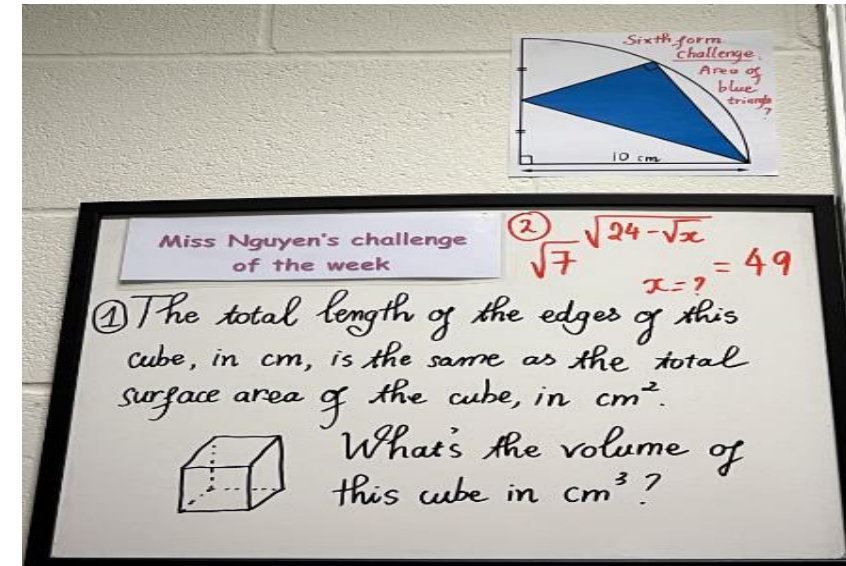 Sixth form
challenge.
Area of
blue
triangle
?
10 cm
Miss Nguyen's challenge
of the week
② √7^√(24-√x) = 49
x = ?
① The total length of the edges of this
cube, in cm, is the same as the total
surface area of the cube, in cm².
What's the volume of
this cube in cm³ ?